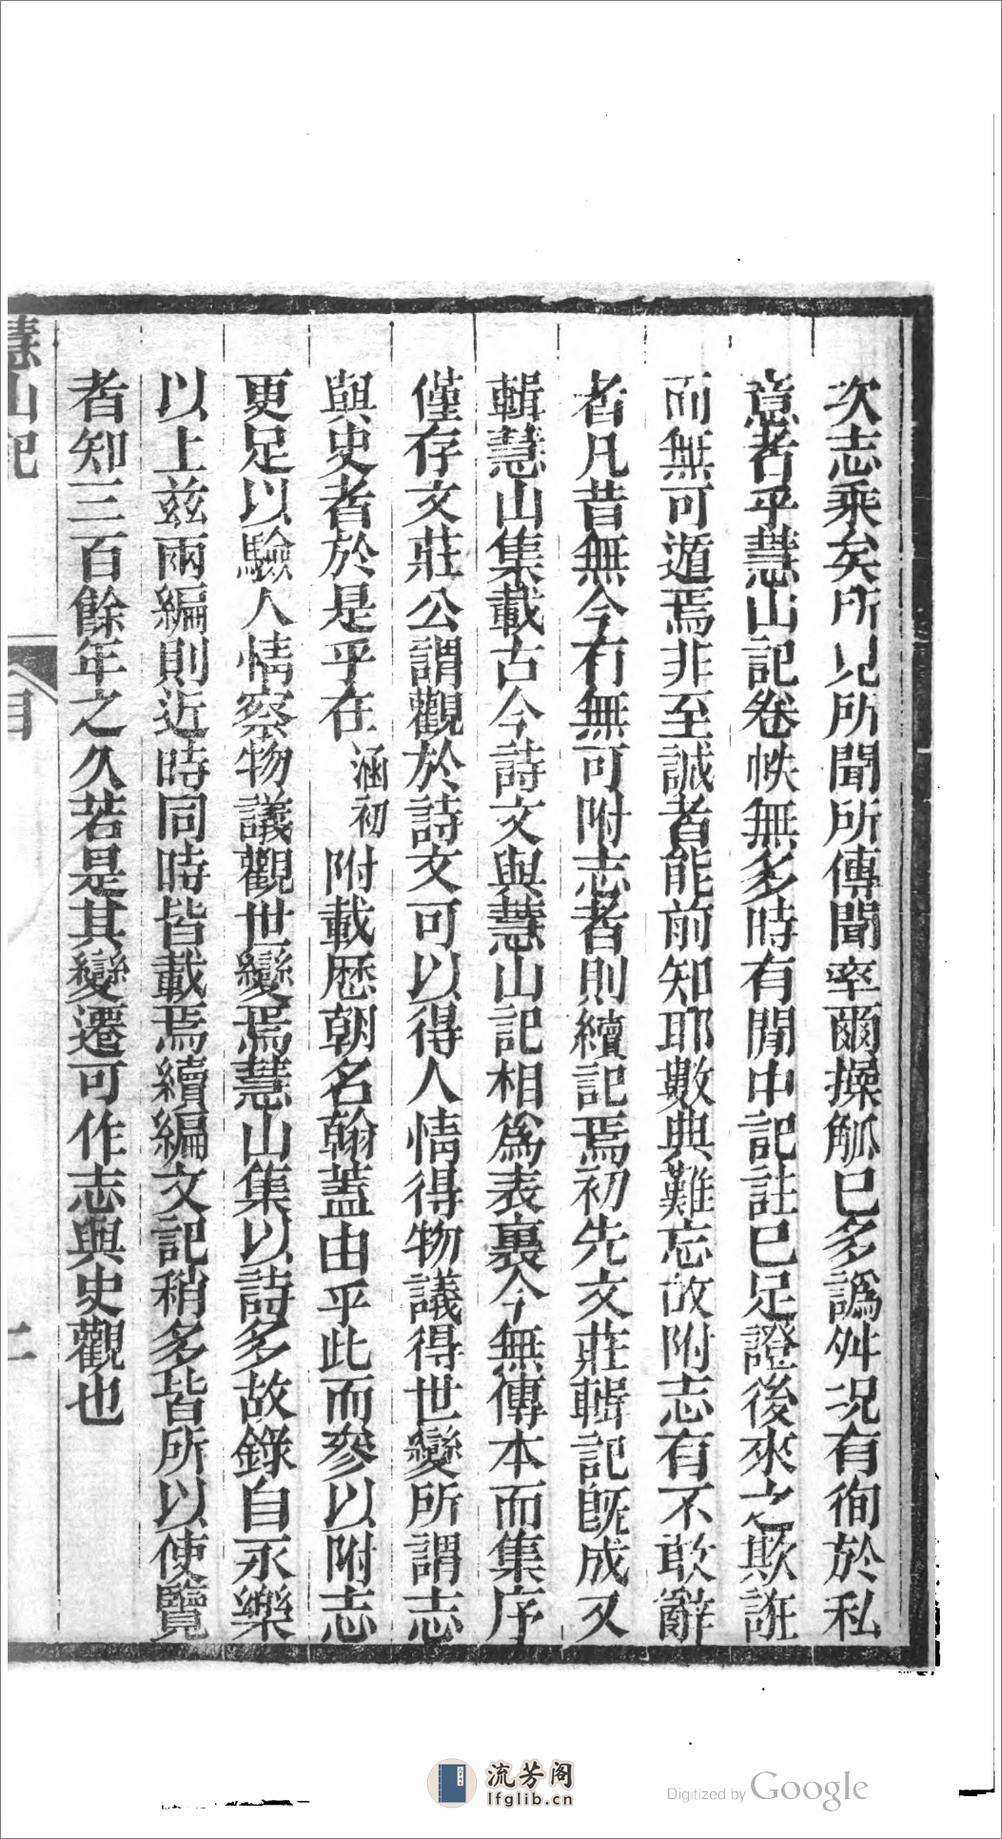 次志乘矣所見所聞所傳聞率爾操觚已多譌舛况有徇於私
意者乎慧山記卷帙無多時有閒中記註已足證後來之欺誑
而無可遁焉非至誠者能前知耶數典難忘故附志有不敢辭
者凡昔無今有無可附志者則續記焉初先文莊輯記旣成又
輯慧山集載古今詩文與慧山記相爲表裏今無傳本而集序
僅存文莊公謂觀於詩文可以得人情得物議得世變所謂志
與史者於是乎在涵初附載歷朝名翰蓋由乎此而參以附志
更足以驗人情察物議觀世變焉慧山集以詩多故錄自永樂
以上茲兩編則近時同時皆載焉續編文記稍多皆所以使覽
者知三百餘年之久若是其變遷可作志與史觀也
慧山記
目
二
流芳阁
lfglib.cn
Digitized by Google